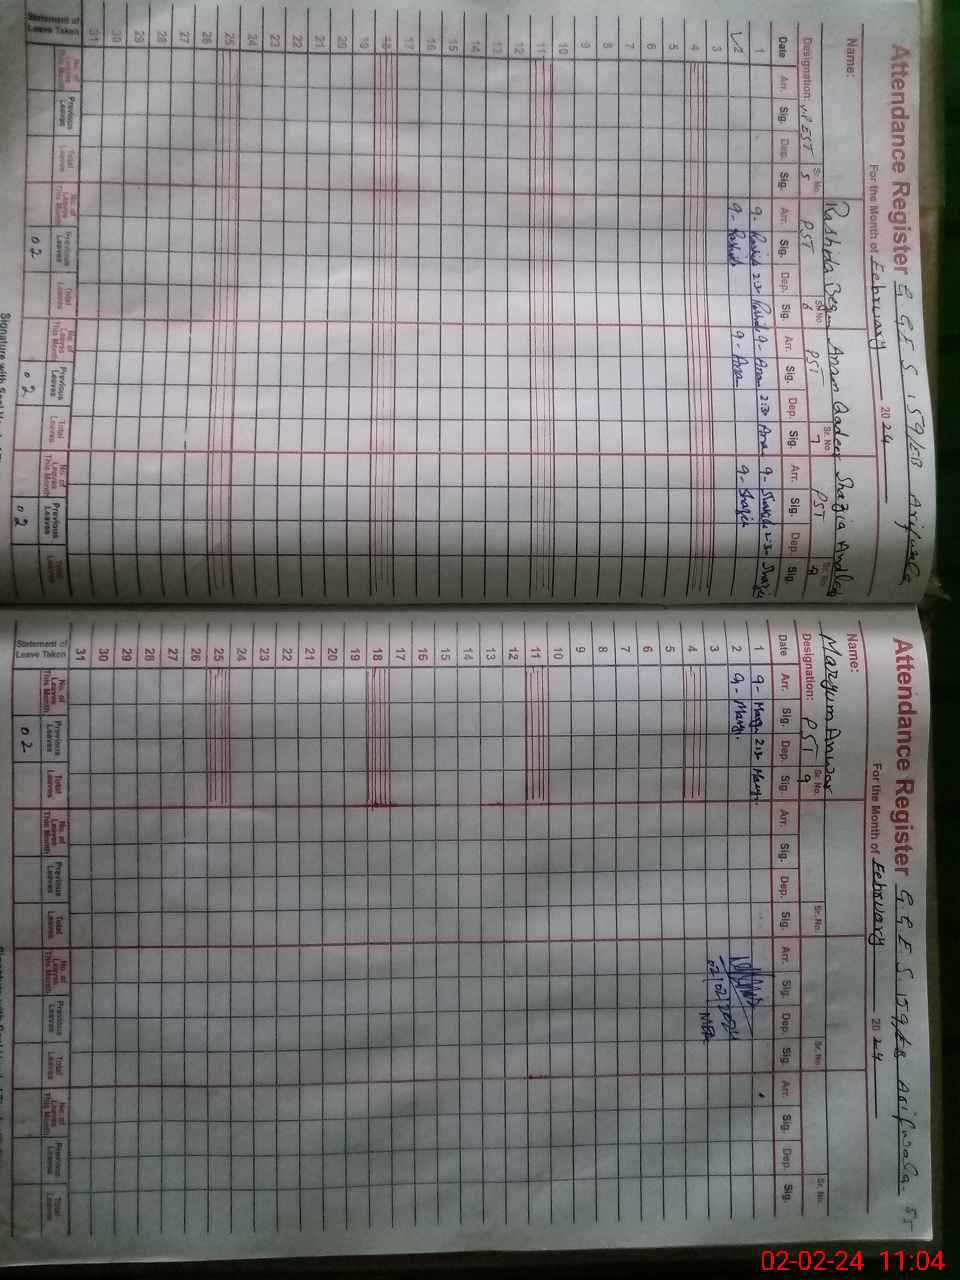 Attendance Register G.G.E.S 159/EB Arifwala
For the Month of February 2024
Name: Rasheda Begum Anam Qadeer Shazia Andleeb
Designation: Sr. No. 5 PST Sr. No. 6 PST Sr. No. 7 PST Sr. No. 8
Date Arr. Sig. Dep. Sig. Arr. Sig. Dep. Sig. Arr. Sig. Dep. Sig. Arr. Sig. Dep. Sig.
1 9- 2:30 9- Anam 2:30 Ana 9- 2:30
2 9- Rashida 9- Ana 9- Shazia
3
4
5
6
7
8
9
10
11
12
13
14
15
16
17
18
19
20
21
22
23
24
25
26
27
28
29
30
31
Statement of Leave Taken
No. of Leaves This Month Previous Leaves Total Leaves No. of Leaves This Month Previous Leaves Total Leaves No. of Leaves This Month Previous Leaves Total Leaves No. of Leaves This Month Previous Leaves Total Leaves
02 02 02
Attendance Register G.G.E.S 159/EB Arifwala
For the Month of February 2024
Name: Maryum Anwar
Designation: PST Sr. No. 9 Sr. No. Sr. No. Sr. No.
Date Arr. Sig. Dep. Sig. Arr. Sig. Dep. Sig. Arr. Sig. Dep. Sig. Arr. Sig. Dep. Sig.
1 9- Mary. 2:30 Mary.
2 9- Mary.
02/02/2024
MEA
3
4
5
6
7
8
9
10
11
12
13
14
15
16
17
18
19
20
21
22
23
24
25
26
27
28
29
30
31
Statement of Leave Taken
No. of Leaves This Month Previous Leaves Total Leaves No. of Leaves This Month Previous Leaves Total Leaves No. of Leaves This Month Previous Leaves Total Leaves No. of Leaves This Month Previous Leaves Total Leaves
02
02-02-24 11:04